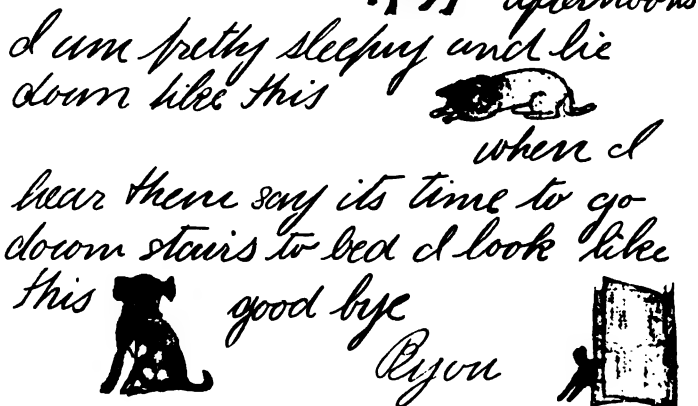 afternoons
I am pretty sleepy and lie
down like this
when I
hear them say its time to go
down stairs to bed I look like
this good bye
Ryon